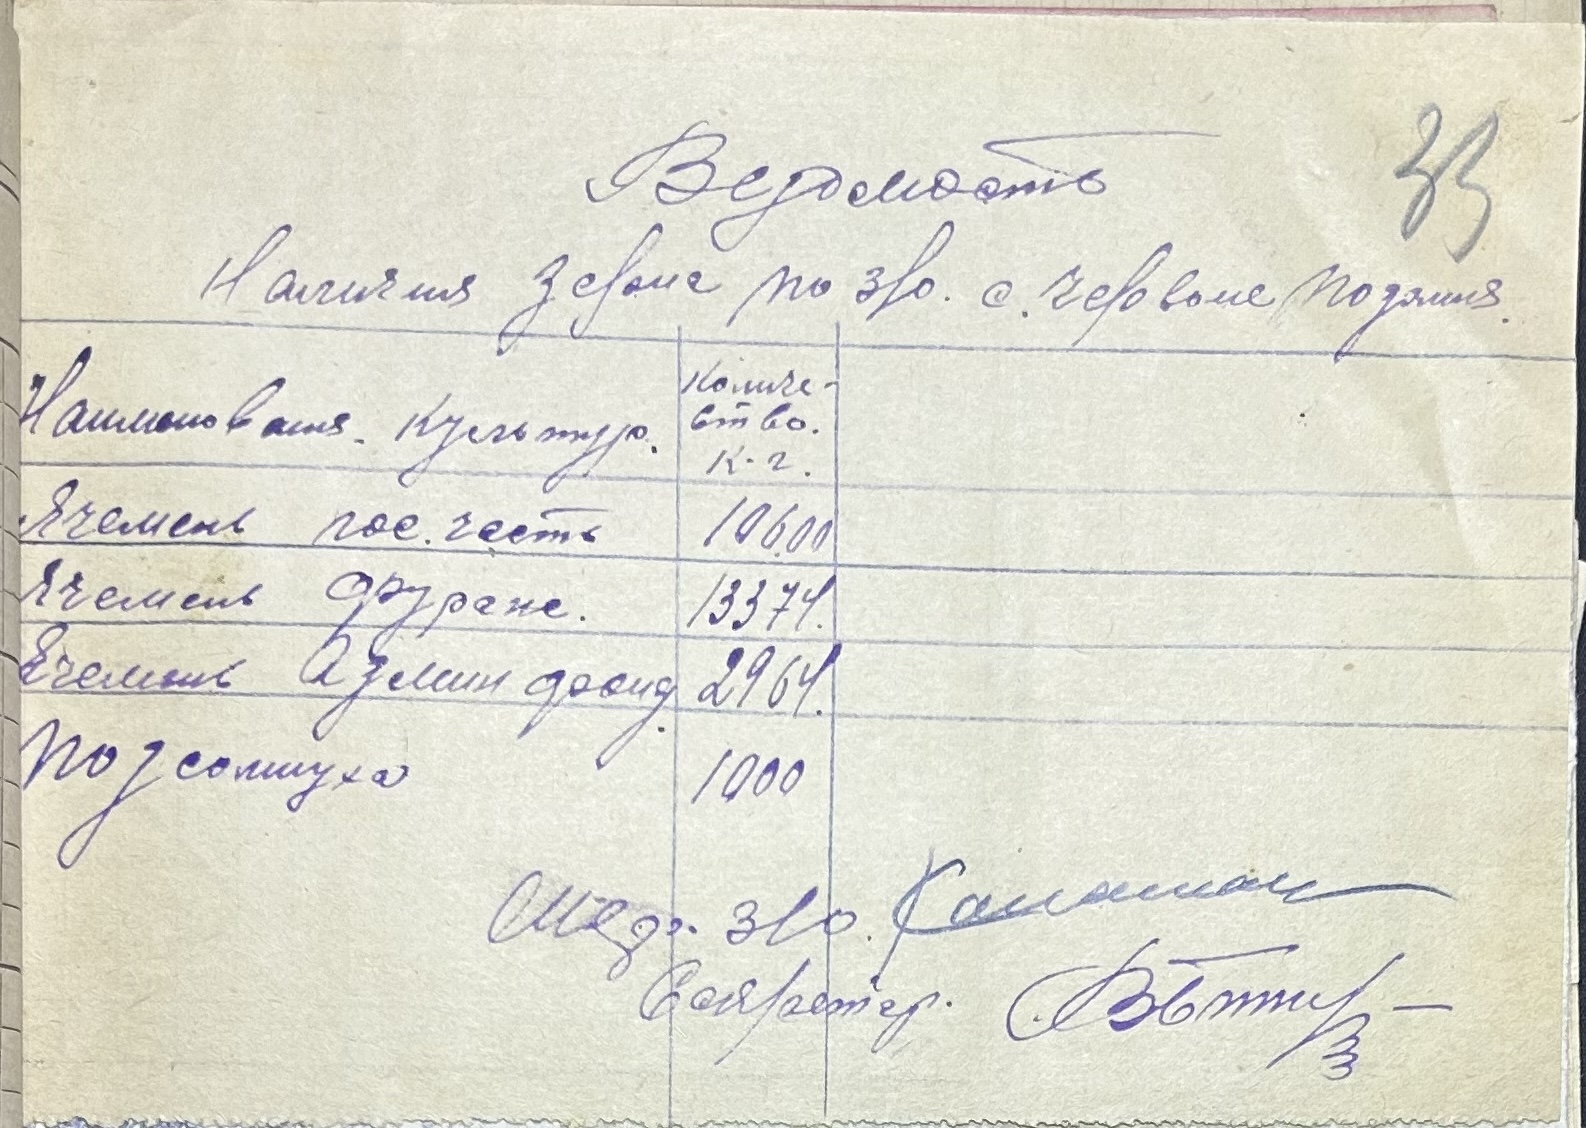 33
Ведомость
Наличия зерна по з/о. с. Червоне Подолля.
Наименования. Культур.
Количе-
ство.
к.г.
Ячмень гос. часть 10600
Ячмень фураж. 13374.
Ячмень Админ фонд. 2964.
Подсолнуха 1000
з/о.
Секретар.